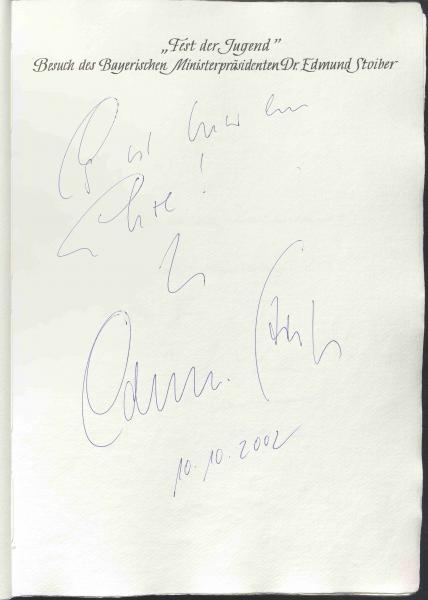 „Fest der Jugend”
Besuch des Bayerischen Ministerpräsidenten Dr. Edmund Stoiber
Es ist mir eine
Ehre!
Ihr
Edmund Stoiber
10.10.2002